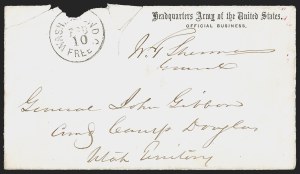 Headquarters Army of the United States.
OFFICIAL BUSINESS.
WASH
D.C.
10
FREE
W T Sherman
General
General John Gibbon
Comdg Camp Douglas
Utah Territory